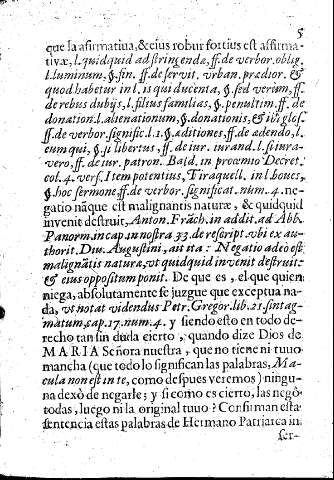 5
que la afirmatiua, & eius robur fortius est affirma-
tivæ, l. quidquid adstringendæ, ff. de verbor. oblig.
l. luminum, §. fin. ff. de servit. urban. prædior. &
quod habetur in l. is qui ducenta, §. sed verum, ff.
de rebus dubijs, l. filius familias, §. penultim. ff. de
donation. l. alienationum, §. donationis, & ibi glos.
ff. de verbor. signific. l. 1. §. æditiones, ff. de adendo, l.
eum qui, §. si libertus, ff. de iur. iurand. l. si iura-
vero, ff. de iur. patron. Bald. in proœmio Decret.
col. 4. vers. Item potentius, Tiraquell. in l. boues,
§. hoc sermone ff. de verbor. significat. num. 4. ne-
gatio nāque est malignantis naturæ, & quidquid
invenit destruit, Anton. Frāch. in addit. ad Abb.
Panorm. in cap. in nostra 33. de rescript. vbi ex au-
thorit. Diu. Augustini, ait ita: Negatio adeo est
malignātis naturæ, vt quidquid invenit destruit:
& eius oppositum ponit. De que es, el que quien
niega, absolutamente se juzgue que exceptua na-
da, vt notat videndus Petr. Gregor. lib. 21. sintag-
matum, cap. 17. num. 4. y siendo esto en todo de-
recho tan sin duda cierto, quando dize Dios de
MARIA Señora nuestra, que no tiene ni tuuo
mancha (que todo lo significan las palabras, Ma-
cula non est in te, como despues veremos) ningu-
na dexò de negarle; y si como es cierto, las negò
todas, luego ni la original tuuo? Confirman esta
sentencia estas palabras de Hermano Patriarca in
ser-